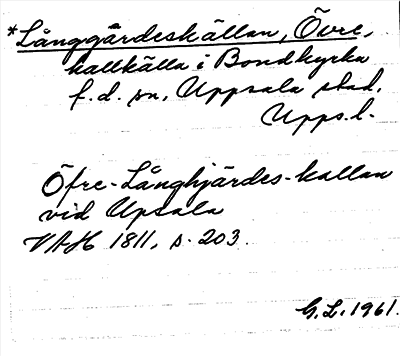 *Långgärdeskällan, Övre,
kallkälla i Bondkyrka
f.d. sn, Uppsala stad,
Upps.l.
Öfre-Långhjärdes-kallan
vid Upsala
VAH 1811, s. 203.
G.L. 1961.